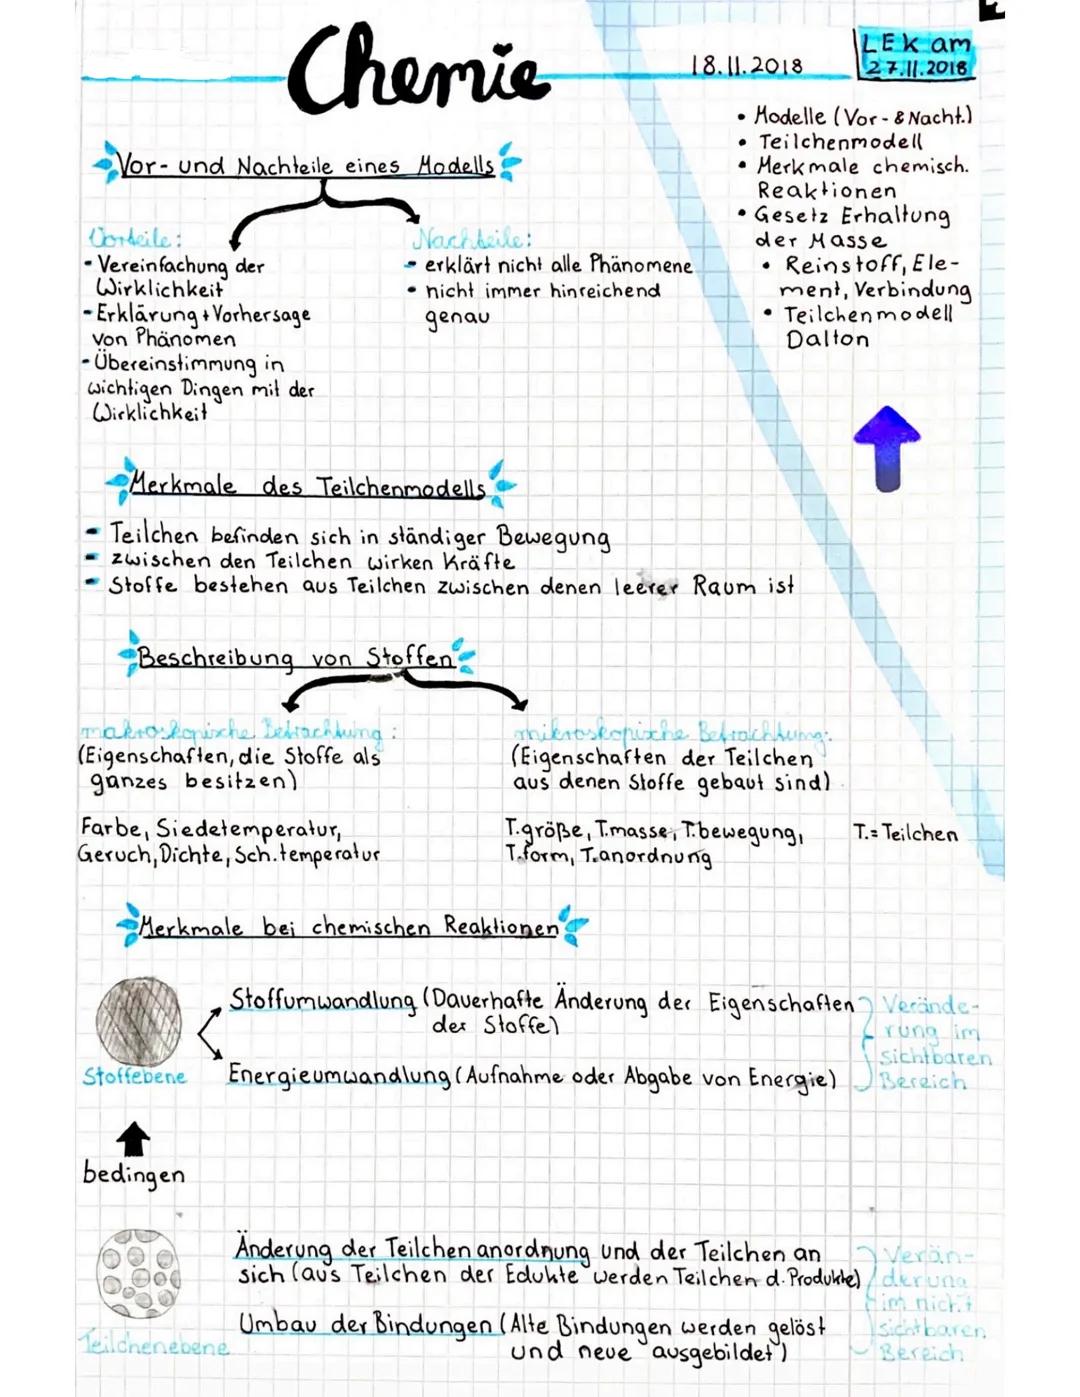 Chemie
18.11.2018
LEK am
27.11.2018
• Modelle (Vor- & Nacht.)
• Teilchenmodell
• Merkmale chemisch.
Reaktionen
• Gesetz Erhaltung
der Masse
• Reinstoff, Ele-
ment, Verbindung
• Teilchenmodell
Dalton
Vor- und Nachteile eines Modells
Vorteile:
- Vereinfachung der
Wirklichkeit
- Erklärung + Vorhersage
von Phänomen
- Übereinstimmung in
wichtigen Dingen mit der
Wirklichkeit
Nachteile:
• erklärt nicht alle Phänomene
• nicht immer hinreichend
genau
Merkmale des Teilchenmodells
- Teilchen befinden sich in ständiger Bewegung
- zwischen den Teilchen wirken Kräfte
- Stoffe bestehen aus Teilchen zwischen denen leerer Raum ist
Beschreibung von Stoffen
makroskopische Betrachtung:
(Eigenschaften, die Stoffe als
ganzes besitzen)
Farbe, Siedetemperatur,
Geruch, Dichte, Sch.temperatur
mikroskopische Betrachtung:
(Eigenschaften der Teilchen
aus denen Stoffe gebaut sind)
T.größe, T.masse, T.bewegung,
T.form, T.anordnung
T.= Teilchen
Merkmale bei chemischen Reaktionen
Stoffebene
Stoffumwandlung (Dauerhafte Änderung der Eigenschaften
der Stoffe)
Energieumwandlung (Aufnahme oder Abgabe von Energie)
Verände-
rung im
sichtbaren
Bereich
bedingen
Teilchenebene
Änderung der Teilchenanordnung und der Teilchen an
sich (aus Teilchen der Edukte werden Teilchen d. Produkte)
Umbau der Bindungen (Alte Bindungen werden gelöst
und neue ausgebildet)
Verän-
derung
im nicht
sichtbaren
Bereich